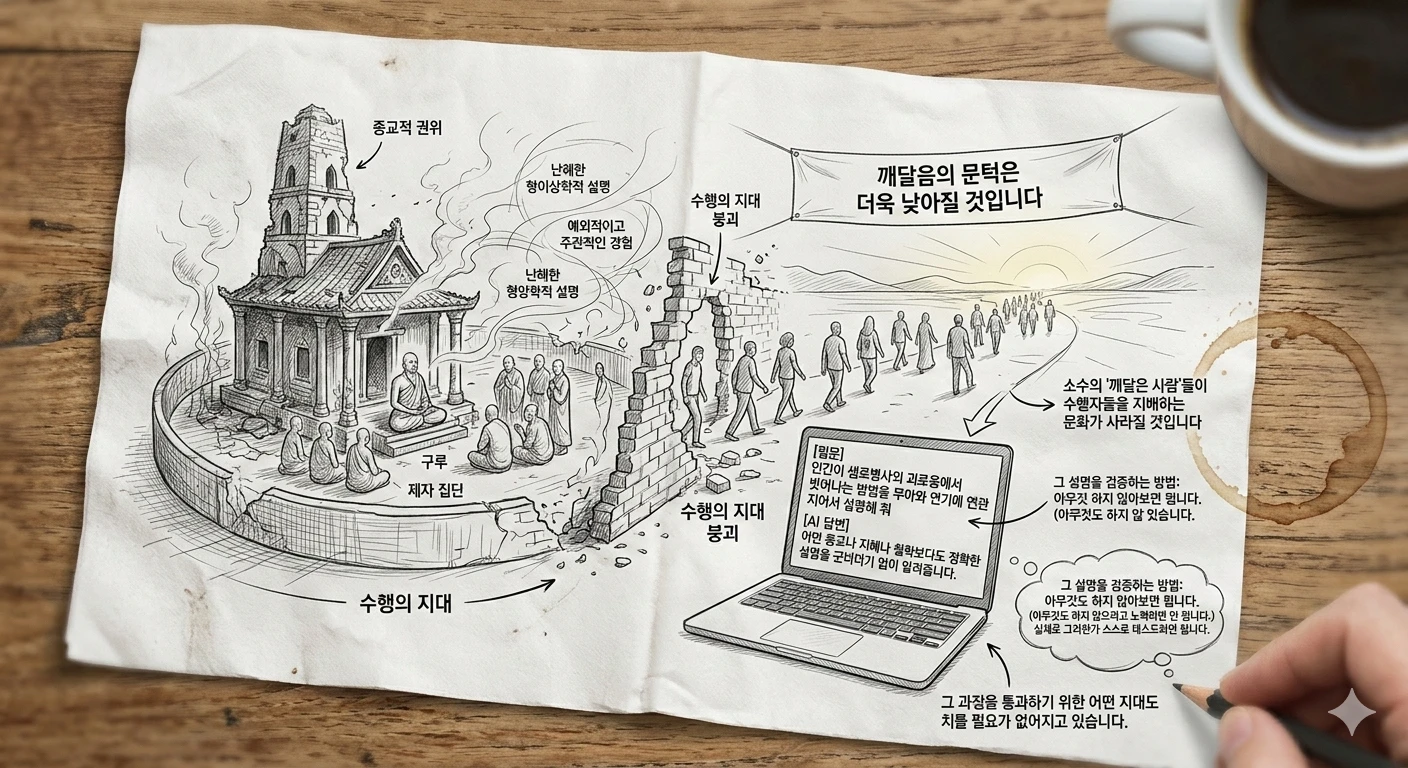 종교적 권위
난해한
형이상학적 설명
예외적이고
주관적인 경험
난해한
형앙학적 설명
수행의 지대
붕괴
깨달음의 문턱은
더욱 낮아질 것입니다
구루
제자 집단
수행의 지대
수행의 지대
붕괴
소수의 '깨달은 사람'들이
수행자들을 지배하는
문화가 사라질 것입니다
[질문]
인간이 생로병사의 괴로움에서
벗어나는 방법을 무아와 연기에 연관
지어서 설명해 줘
[AI 답변]
어떤 종교나 지혜나 철학보다도 정확한
설명을 군더더기 없이 알려줍니다.
그 설명을 검증하는 방법:
아무것 하지 않아보면 됩니다.
(아무것도 하지 않 있습니다.
그 설명을 검증하는 방법:
아무것도 하지 않아보면 됩니다.
(아무것도 하지 않으려고 노력하면 안 됩니다.)
실제로 그러한가 스스로 테스트하면 됩니다.
그 과장을 통과하기 위한 어떤 지대도
치를 필요가 없어지고 있습니다.